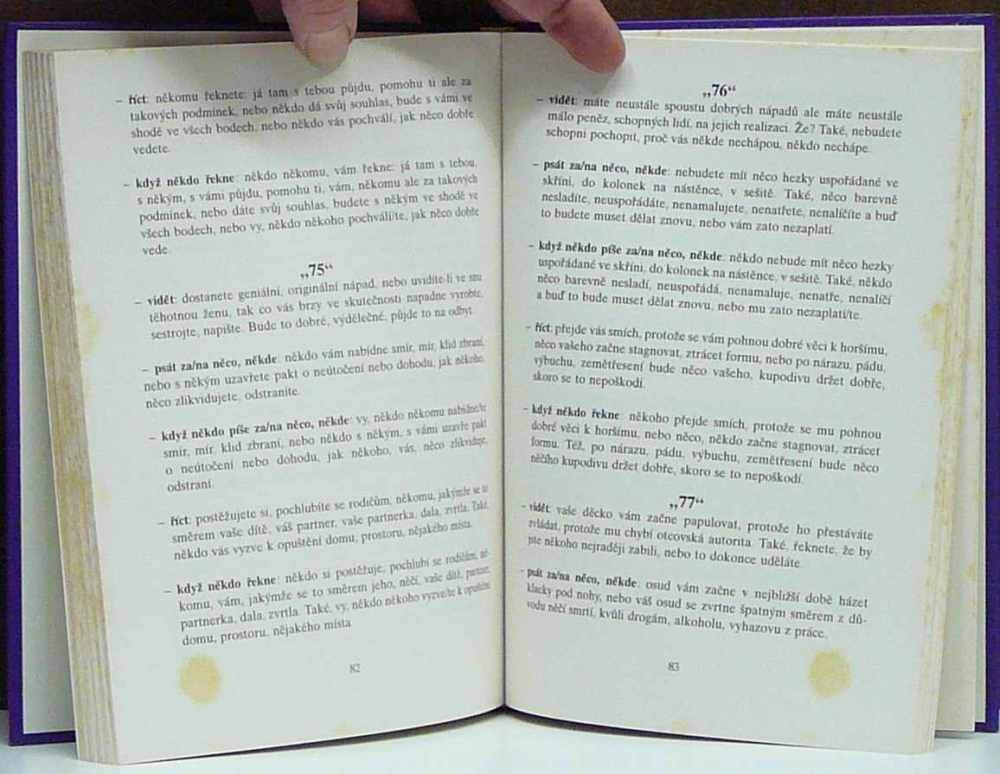 – říct: někomu řeknete: já tam s tebou půjdu, pomohu ti ale za
takových podmínek, nebo někdo dá svůj souhlas, bude s vámi ve
shodě ve všech bodech, nebo někdo vás pochválí, jak něco dobře
vedete.
– když někdo řekne: někdo někomu, vám řekne: já tam s tebou,
s někým, s vámi půjdu, pomohu ti, vám, někomu ale za takových
podmínek, nebo dáte svůj souhlas, budete s někým ve shodě ve
všech bodech, nebo vy, někdo někoho pochválí/te, jak něco dobře
vede.
„75“
– vidět: dostanete geniální, originální nápad, nebo uvidíte-li ve snu
těhotnou ženu, tak co vás brzy ve skutečnosti napadne vyrobte,
sestrojte, napište. Bude to dobré, výdělečné, půjde to na odbyt.
– psát za/na něco, někde: někdo vám nabídne smír, mír, klid zbraní,
nebo s někým uzavřete pakt o neútočení nebo dohodu, jak někoho,
něco zlikvidujete, odstraníte.
– když někdo píše za/na něco, někde: vy, někdo někomu nabídne/te
smír, mír, klid zbraní, nebo někdo s někým, s vámi uzavře pakt
o neútočení nebo dohodu, jak někoho, vás, něco zlikviduje,
odstraní.
– říct: postěžujete si, pochlubíte se rodičům, někomu, jakýmže se to
směrem vaše dítě, váš partner, vaše partnerka, dala, zvrtla. Také,
někdo vás vyzve k opuštění domu, prostoru, nějakého místa.
– když někdo řekne: někdo si postěžuje, pochlubí se rodičům, ně-
komu, vám, jakýmže se to směrem jeho, něčí, vaše dítě, partner,
partnerka, dala, zvrtla. Také, vy, někdo někoho vyzve/te k opuštění
domu, prostoru, nějakého místa
82
„76“
– vidět: máte neustále spoustu dobrých nápadů ale máte neustále
málo peněz, schopných lidí, na jejich realizaci. Že? Také, nebudete
schopni pochopit, proč vás někde nechápou, někdo nechápe.
– psát za/na něco, někde: nebudete mít něco hezky uspořádané ve
skříni, do kolonek na nástěnce, v sešitě. Také, něco barevně
nesladíte, neuspořádáte, nenamalujete, nenatřete, nenalíčíte a buď
to budete muset dělat znovu, nebo vám zato nezaplatí.
– když někdo píše za/na něco, někde: někdo nebude mít něco hezky
uspořádané ve skříni, do kolonek na nástěnce, v sešitě. Také, někdo
něco barevně nesladí, neuspořádá, nenamaluje, nenatře, nenalíčí
a buď to bude muset dělat znovu, nebo mu zato nezaplatí/te.
– říct: přejde vás smích, protože se vám pohnou dobré věci k horšímu,
něco vašeho začne stagnovat, ztrácet formu, nebo po nárazu, pádu,
výbuchu, zemětřesení bude něco vašeho, kupodivu držet dobře,
skoro se to nepoškodí.
– když někdo řekne: někoho přejde smích, protože se mu pohnou
dobré věci k horšímu, nebo něco, někdo začne stagnovat, ztrácet
formu. Též, po nárazu, pádu, výbuchu, zemětřesení bude něco
něčího kupodivu držet dobře, skoro se to nepoškodí.
„77“
– vidět: vaše děcko vám začne papulovat, protože ho přestáváte
zvládat, protože mu chybí otcovská autorita. Také, řeknete, že by
jste někoho nejraději zabili, nebo to dokonce uděláte.
– psát za/na něco, někde: osud vám začne v nejbližší době házet
klacky pod nohy, nebo váš osud se zvrtne špatným směrem z dů-
vodu něčí smrti, kvůli drogám, alkoholu, vyhazovu z práce.
83